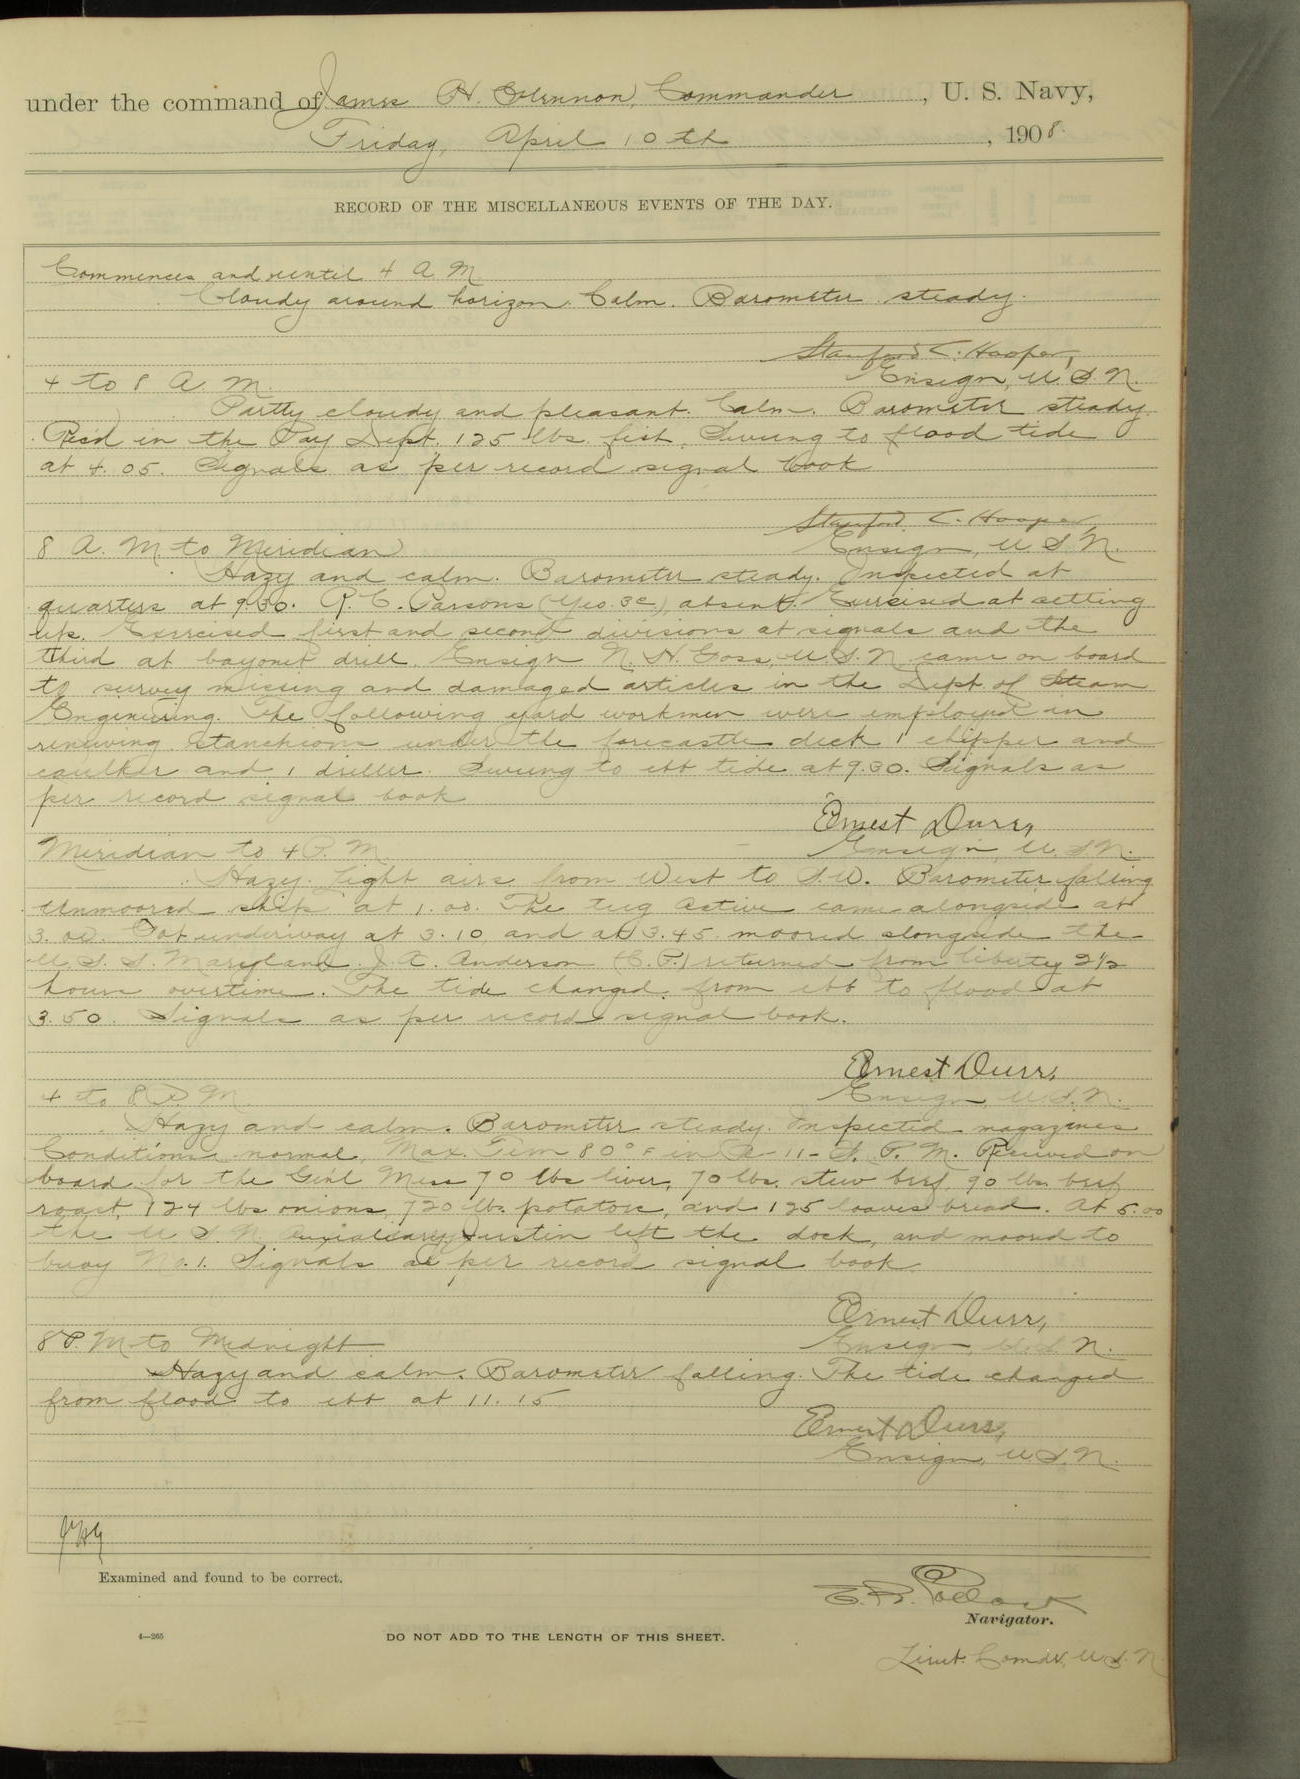 under the command of James H. Glennon, Commander, U. S. Navy,
Friday, April 10th, 1908.
RECORD OF THE MISCELLANEOUS EVENTS OF THE DAY.
Commences and until 4 A. M.
Cloudy around horizon. Calm. Barometer steady.
Stanford C. Hooper,
4 to 8 A. M. Ensign, U. S. N.
Partly cloudy and pleasant. Calm. Barometer steady.
Rec'd in the Pay Dept. 125 lbs. fish. Swung to flood tide
at 4.05. Signals as per record signal book
Stanford C. Hooper,
8 A. M. to Meridian Ensign, U. S. N.
Hazy and calm. Barometer steady. Inspected at
quarters at 9.30. R. C. Parsons (Yeo. 3c) absent. Exercised at setting
ups. Exercised first and second divisions at signals and the
third at bayonet drill. Ensign N. H. Goss, U. S. N. came on board
to survey missing and damaged articles in the Dept. of Steam
Engineering. The following yard workmen were employed in
renewing stanchions under the forecastle deck 1 chipper and
caulker and 1 driller. Swung to ebb tide at 9.30. Signals as
per record signal book
Ernest Durr,
Meridian to 4 P. M. Ensign, U. S. N.
Hazy. Light airs from West to S.W. Barometer falling
Unmoored ship at 1.00. The tug Active came alongside at
3.00. Got underway at 3.10 and at 3.45 moored alongside the
U. S. S. Maryland. J. A. Anderson (C. P.) returned from liberty 2½
hours overtime. The tide changed from ebb to flood at
3.50. Signals as per record signal book.
Ernest Durr,
4 to 8 P. M. Ensign, U. S. N.
Hazy and calm. Barometer steady. Inspected magazines
Conditions normal, Max. Tem 80° F in A-11- P. M. Received on
board for the Gen'l Mess 70 lbs liver, 70 lbs. stew beef 90 lbs. beef
roast, 124 lbs onions, 720 lbs. potatoes, and 125 loaves bread. At 5.00
the U. S. N. Auxialiary Justin left the dock, and moored to
buoy No. 1. Signals as per record signal book.
Ernest Durr,
8 P. M. to Midnight Ensign, U. S. N.
Hazy and calm. Barometer falling. The tide changed
from flood to ebb at 11.15
Ernest Durr,
Ensign, U. S. N.
JHG
Examined and found to be correct.
E. R. Pollock
Navigator.
4—265
DO NOT ADD TO THE LENGTH OF THIS SHEET.
Lieut. Comdr, U. S. N.